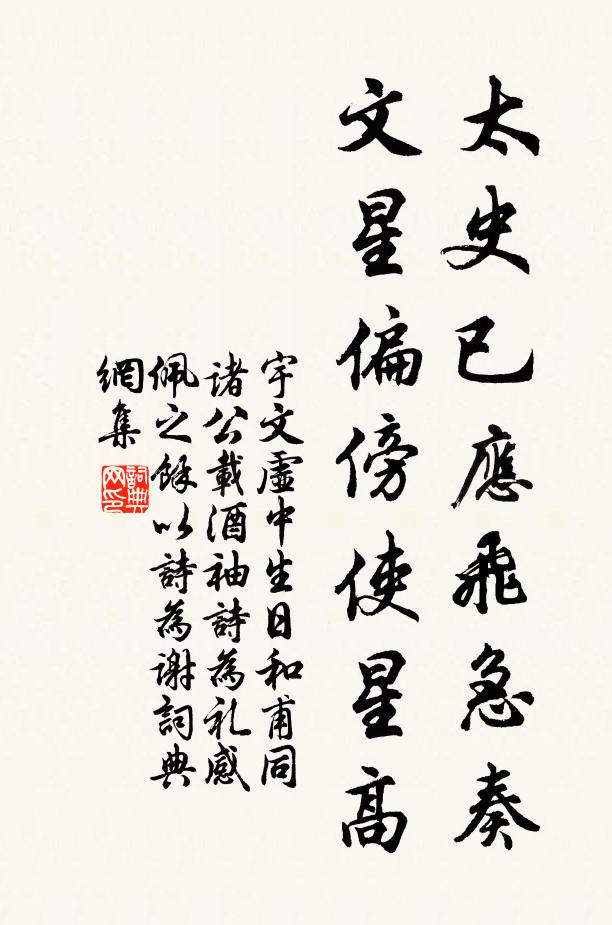 太史已應飛急奏
文星偏傍使星高
宇文虛中生日和甫同
諸公載酒袖詩為礼感
佩之餘以詩為謝詞典
網集
詞典網印